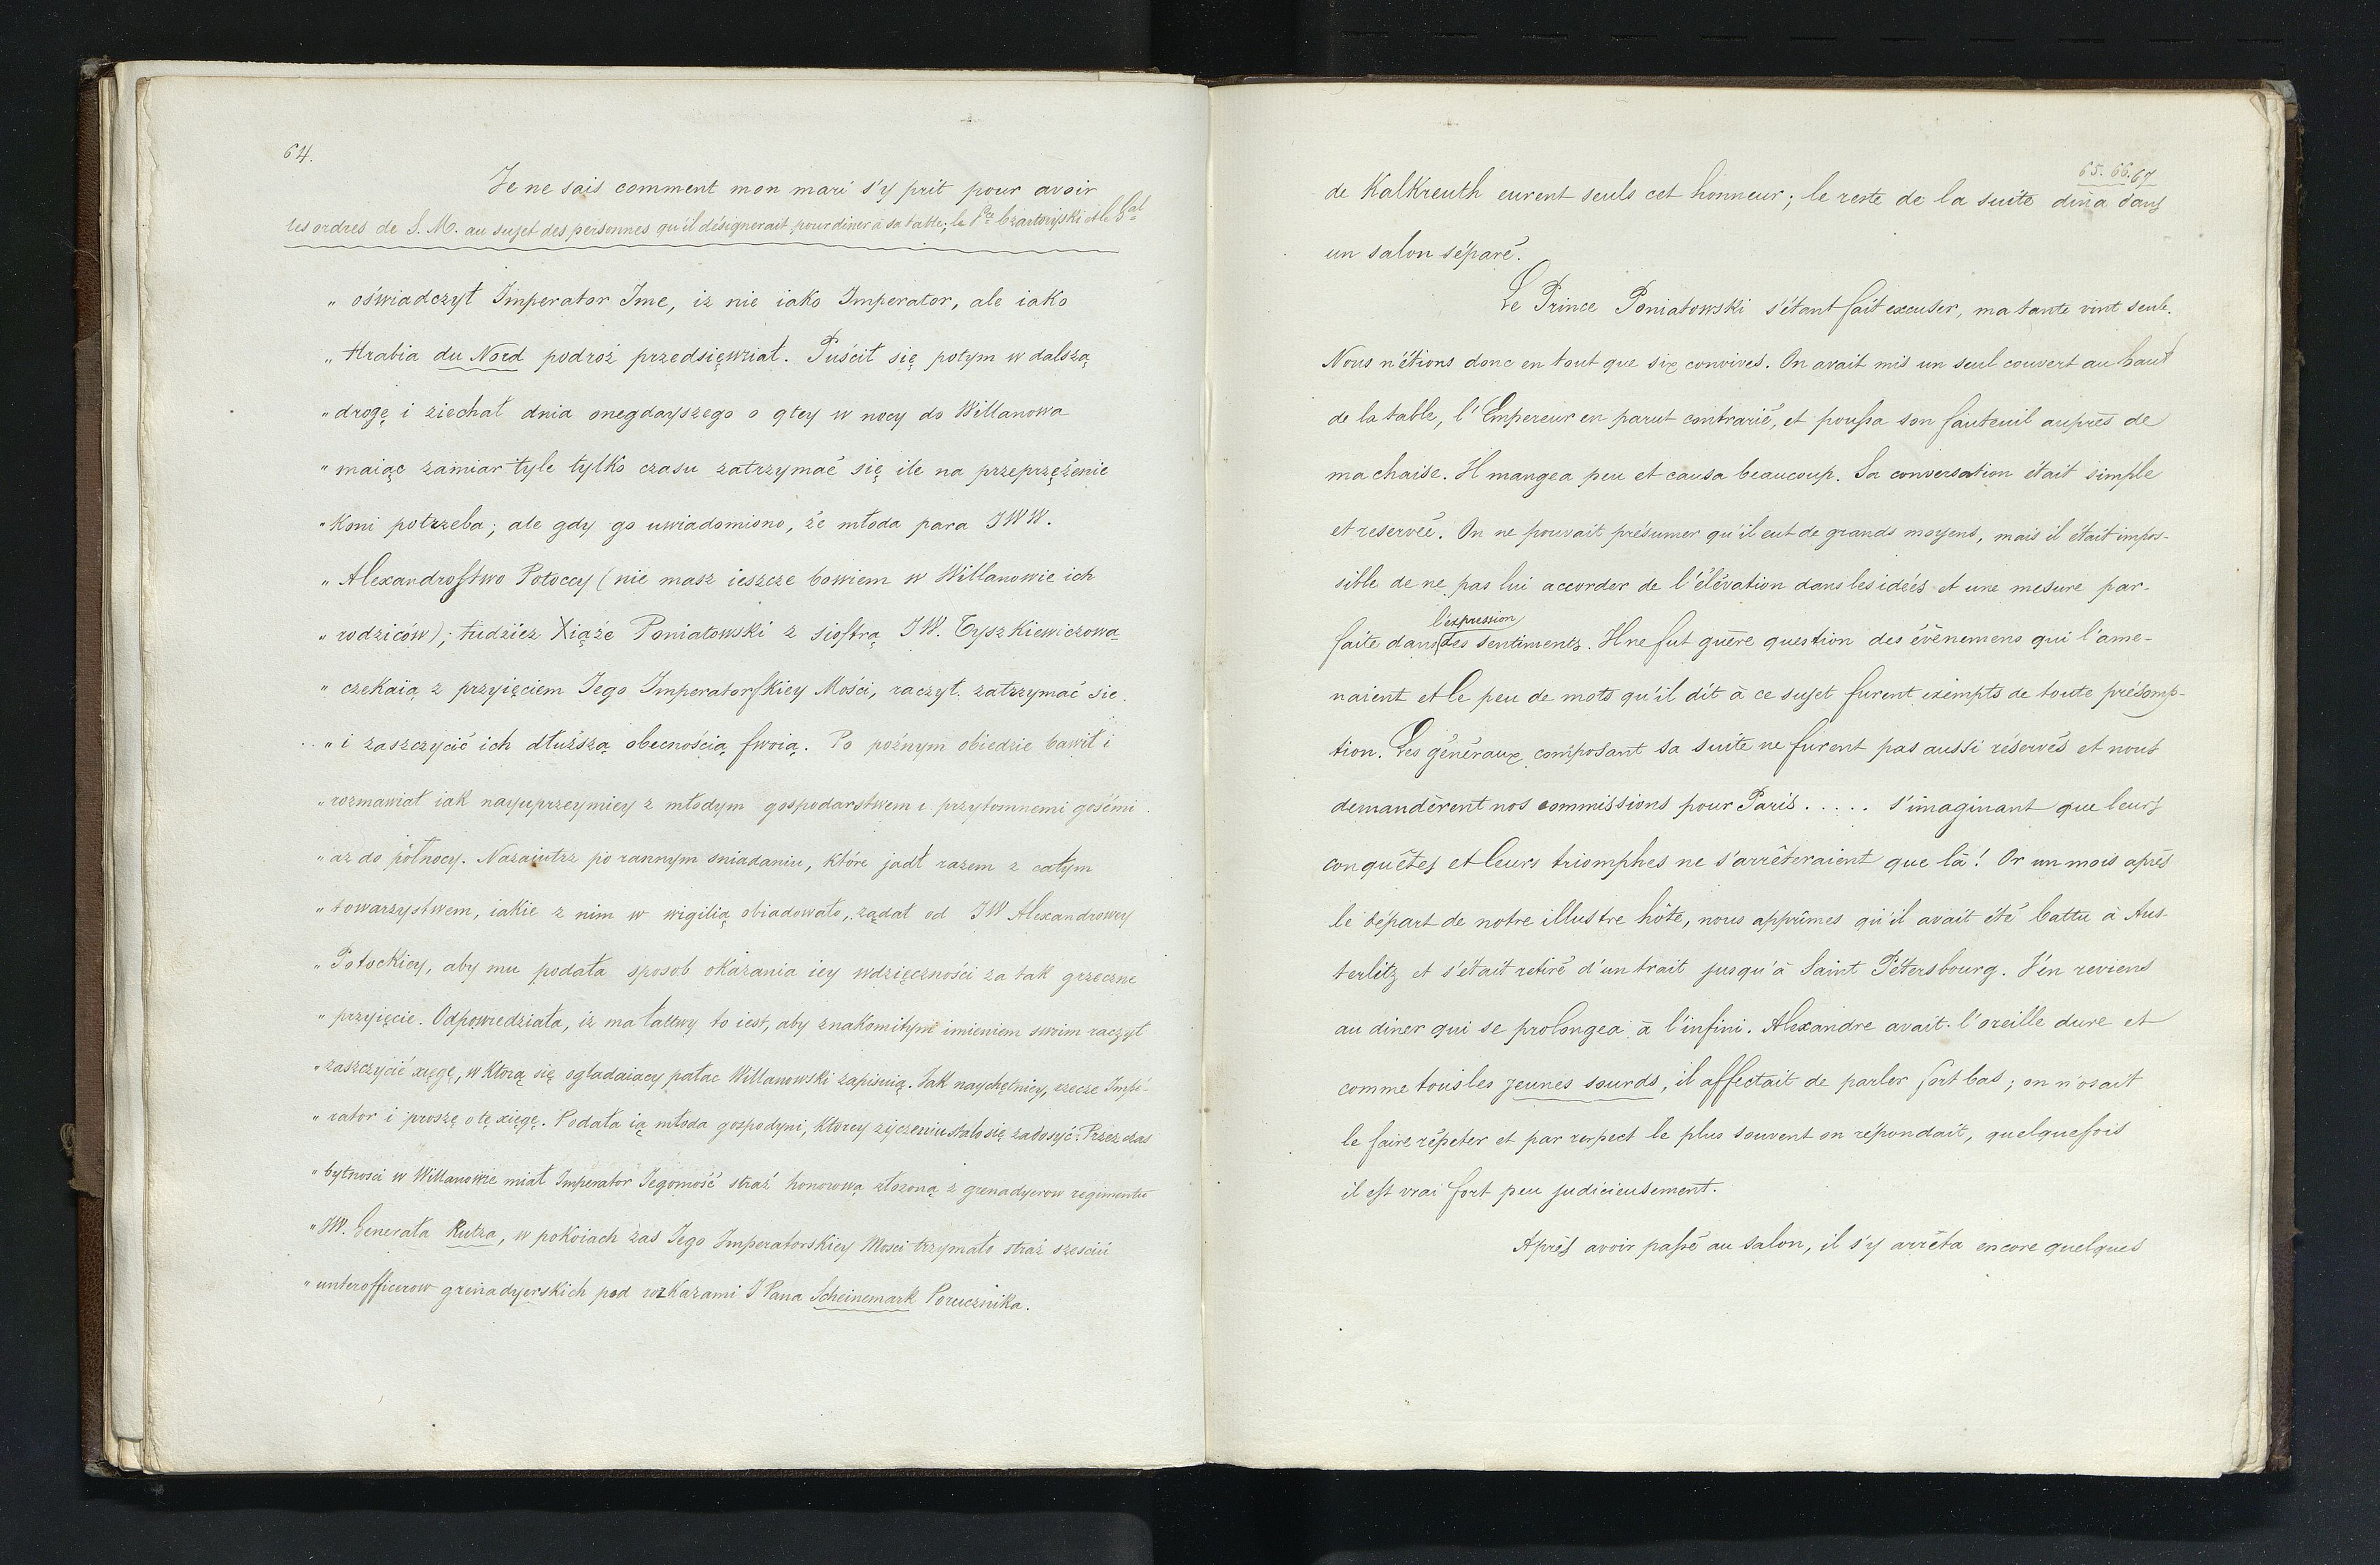 64.
Je ne sais comment mon mari s'y prit pour avoir
les ordres de S. M. au sujet des personnes qu'il désignerait pour diner à sa table; le Pce Czartoryski et le Gal
„ oświadczył Imperator Jme, iż nie iako Imperator, ale iako
„ Hrabia du Nord podroż przedsięwział. Puścił się potym w dalszą
„ drogę i ziechał dnia onegdayszego o 9tey w nocy do Willanowa
„ maiąc zamiar tyle tylko czasu zatrzymać się ile na przeprzężenie
„ Koni potrzeba; ale gdy go uwiadomiono, że młoda para JWW.
„ Alexandrostwo Potoccy (nie masz ieszcze bowiem w Willanowie ich
„ rodziców); tudzież Xiąże Poniatowski z siostrą JW. Tyszkiewiczową
„ czekaią z przyięciem Jego Imperatorskiey Mości, raczył zatrzymać się
„ i zaszczycić ich dłuższą obecnością swoią. Po poźnym obiedzie bawił i
„ rozmawiał iak nayuprzeymiey z młodym gospodarstwem i przytomnemi gośćmi
„ aż do północy. Nazaiutrz po rannym sniadaniu, które jadł razem z całym
„ towarzystwem, iakie z nim w wigilią obiadowało, żądał od JW Alexandrowey
„ Potockiey, aby mu podała sposob okazania iey wdzięczności za tak grzeczne
„ przyięcie. Odpowiedziała, iż ma łatwy to iest, aby znakomitym imieniem swoim raczył
„ zaszczycić xięgę, w którą się ogladaiacy pałac Willanowski zapisuią. Jak naychętniey, rzecze Impe-
„ rator i proszę o tę xięgę. Podała ią młoda gospodyni, ktorey życzeniu stało się zadosyć. Przez czas
„ bytnosci w Willanowie miał Imperator Jegomość straż honorową złożoną z grenadyerow regimentu
„ JW. Generała Rutza, w pokoiach zas Jego Imperatorskiey Mosci trzymało straż szesciu
„ unterofficerow grenadyerskich pod rozkazami J Pana Scheinemark Porucznika.
65. 66. 67
de Kalkreuth eurent seuls cet honneur; le reste de la suite dina dans
un salon séparé.
Le Prince Poniatowski s'étant fait excuser, ma tante vint seule.
Nous n'étions donc en tout que six convives. On avait mis un seul couvert au haut
de la table, l'Empereur en parut contrarié, et poussa son fauteuil auprès de
ma chaise. Il mangea peu et causa beaucoup. Sa conversation était simple
et reservée. On ne pouvait présumer qu'il eut de grands moyens, mais il était impos-
sible de ne pas lui accorder de l'élévation dans les idées et une mesure par-
l'expression
faite dans des sentiments. Il ne fut guère question des évènemens qui l'ame-
naient et le peu de mots qu'il dit à ce sujet furent exempts de toute présomp-
tion. Les généraux composant sa suite ne furent pas aussi réservés et nous
demandèrent nos commissions pour Paris ..... s'imaginant que leurs
conquêtes et leurs triomphes ne s'arrêteraient que là! Or un mois après
le départ de notre illustre hôte, nous apprîmes qu'il avait été battu à Aus-
terlitz et s'était retiré d'un trait jusqu'à Saint Pétersbourg. J'en reviens
au diner qui se prolongea à l'infini. Alexandre avait l'oreille dure et
comme tous les jeunes sourds, il affectait de parler fort bas; on n'osait
le faire répéter et par respect le plus souvent on répondait, quelquefois
il est vrai fort peu judicieusement.
Après avoir passé au salon, il s'y arrêta encore quelques